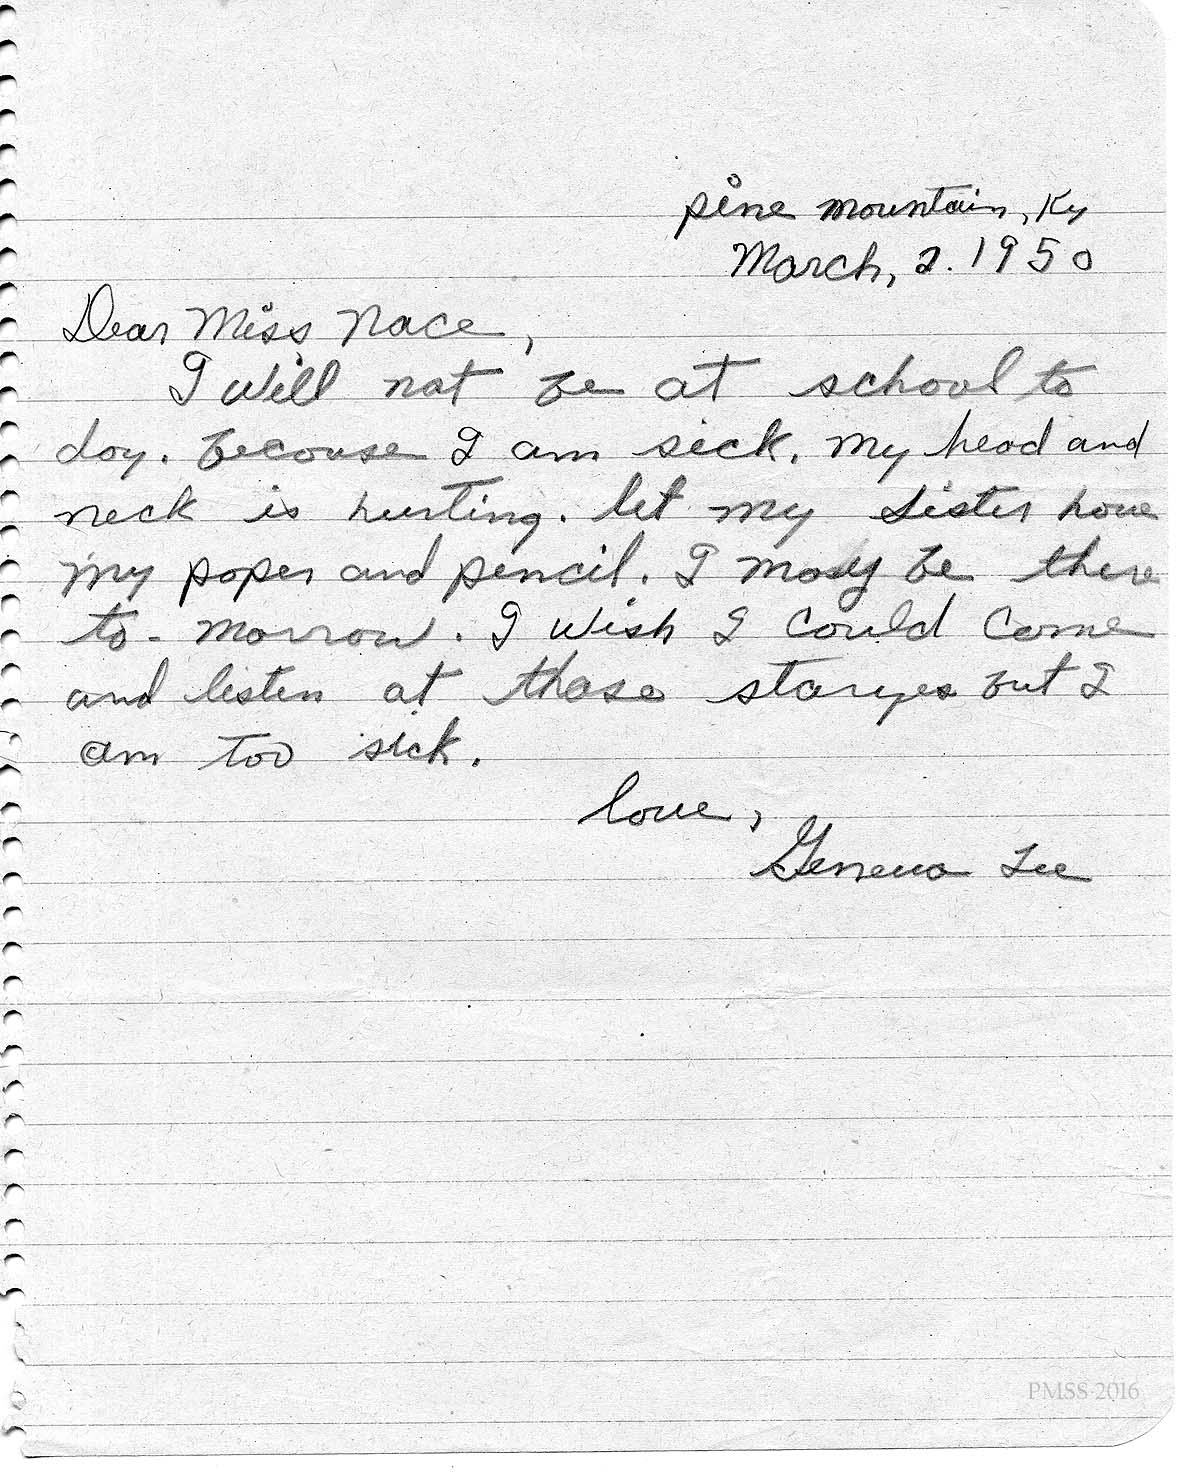 pine mountain, Ky
March, 2. 1950
Dear Miss Nace,
I will not be at school to
day. because I am sick. my head and
neck is hurting. let my sister have
my paper and pencil. I may be there
to-morrow. I wish I could come
and listen at those storyes but I
am too sick.
love,
Geneva Lee
PMSS 2016